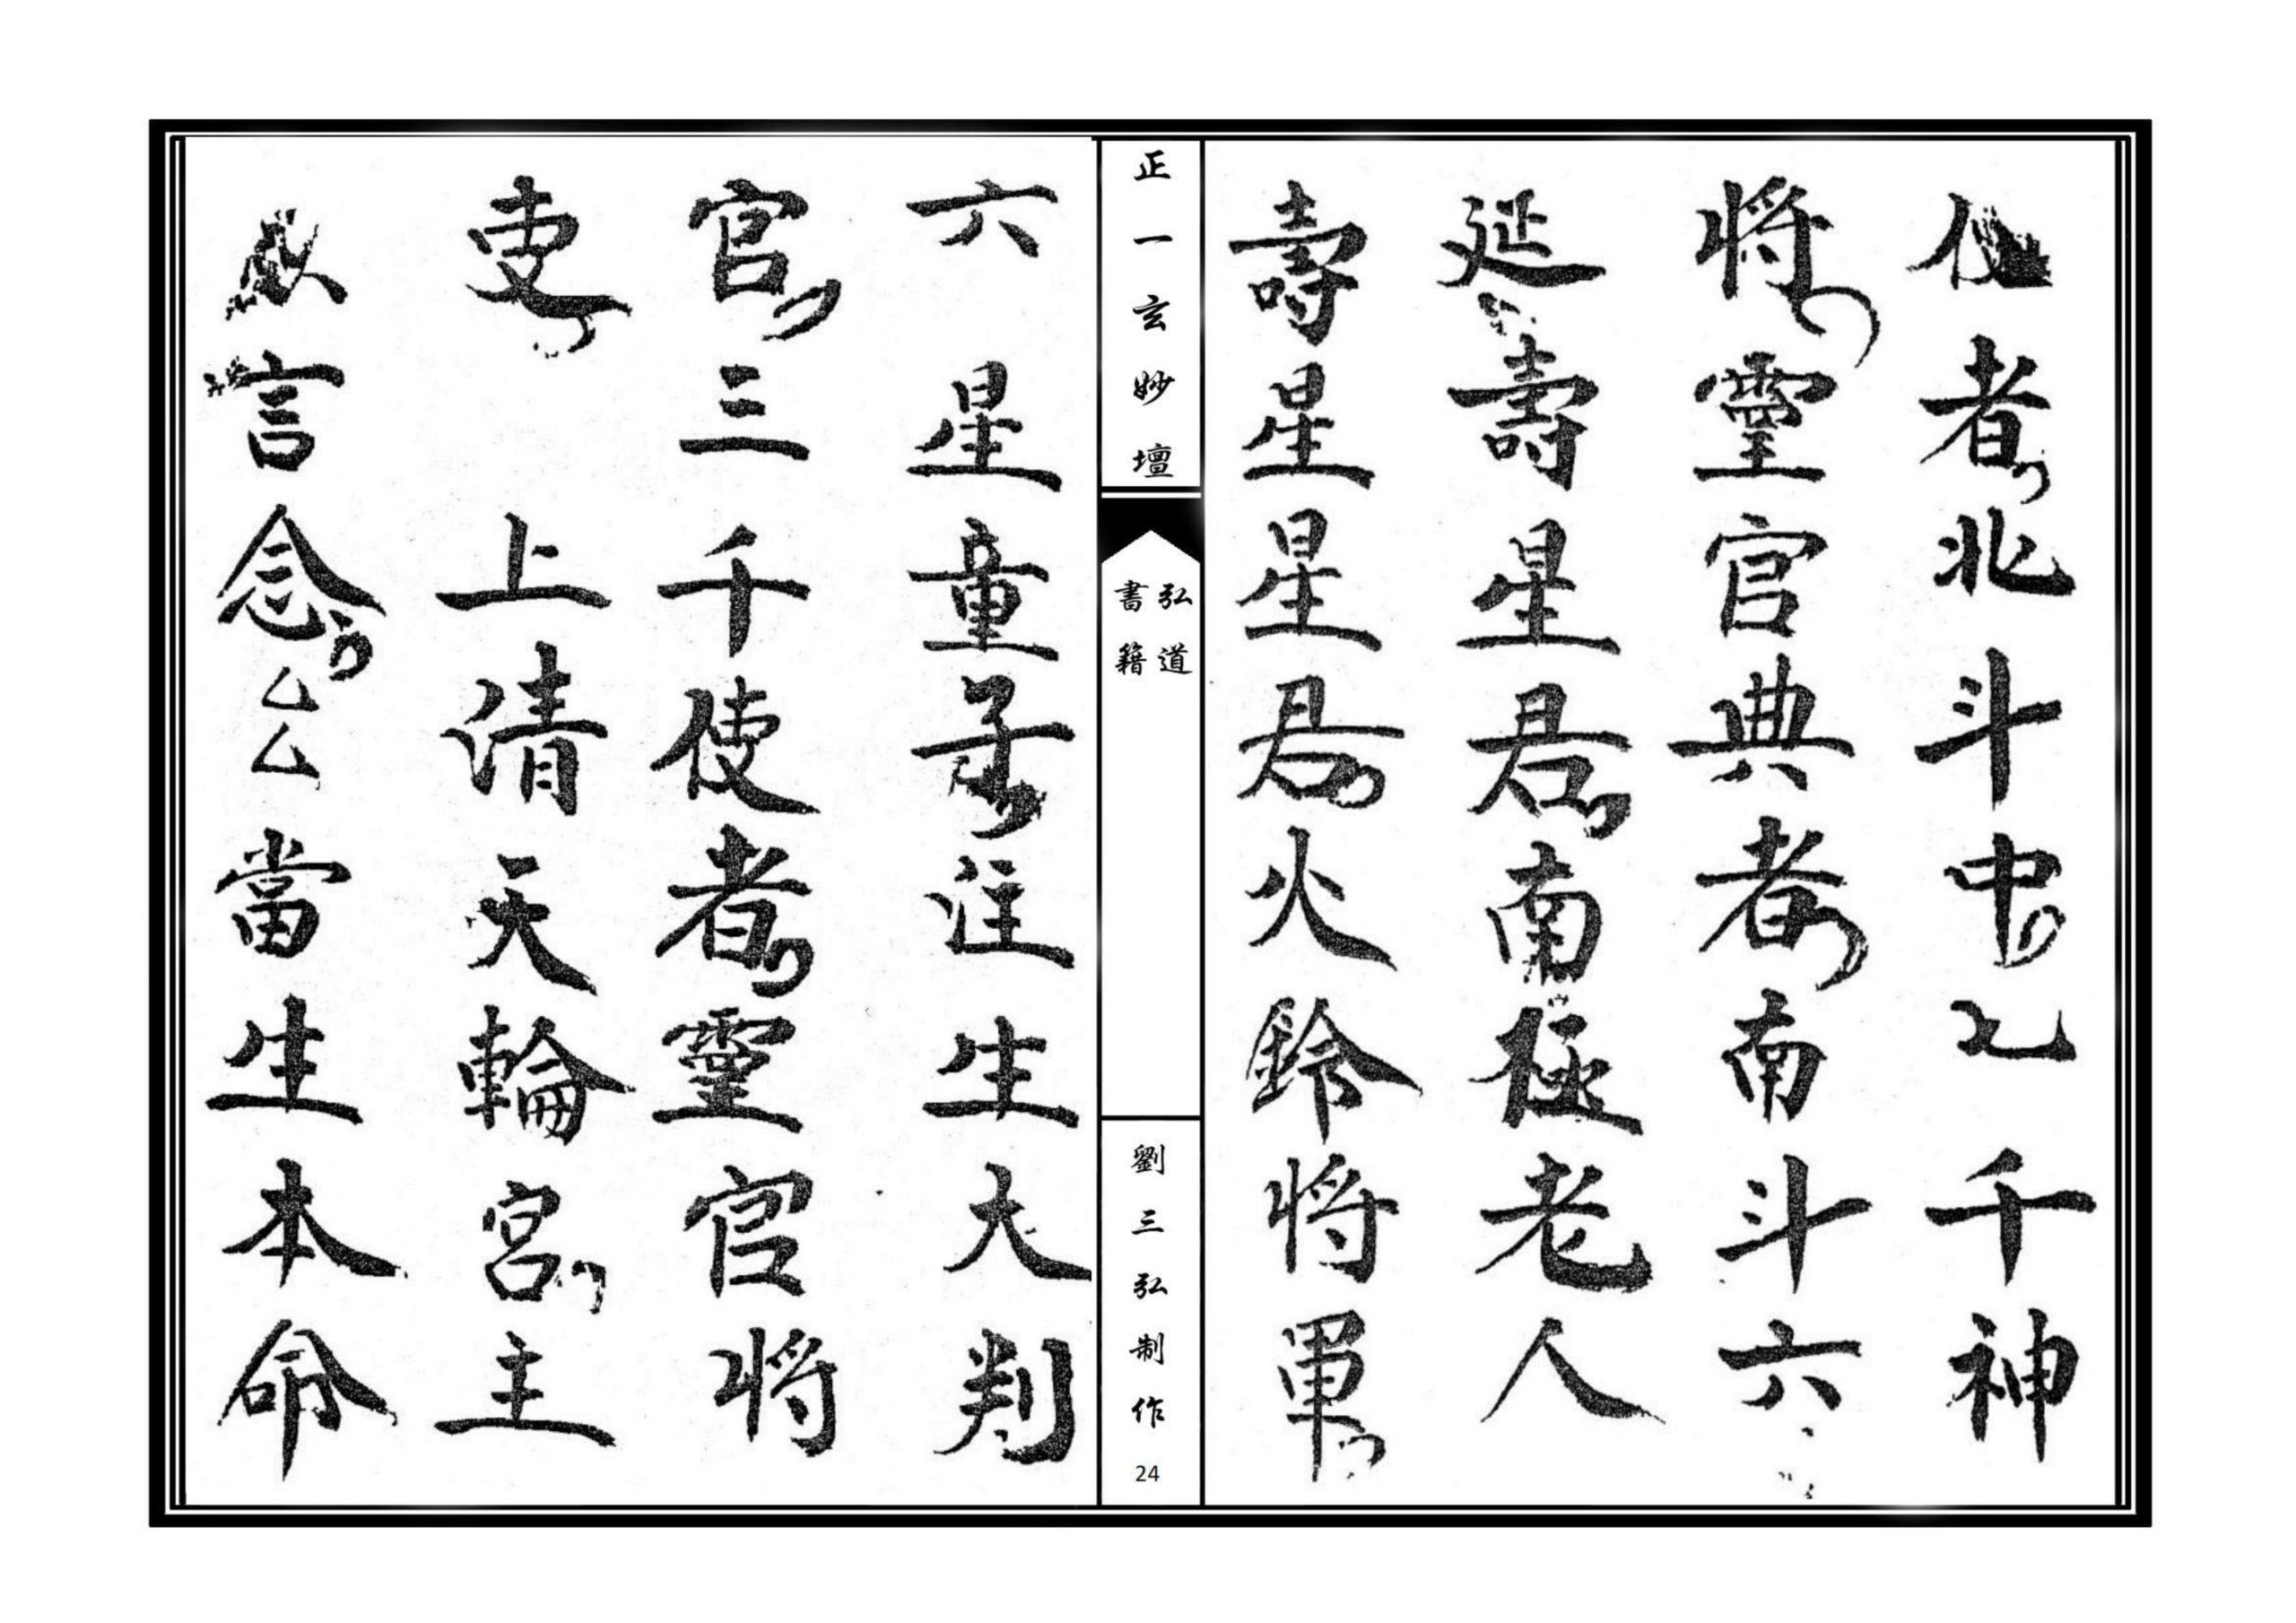 者北斗中七千神
将靈官典者南斗六
延壽星君南極老人
壽星星君火鈴将軍
正一玄妙壇
弘道
書籍
劉三弘制作
24
六星童子注生大判
官三千使者靈官将
吏 上清天輪宮主
言念厶厶當生本命